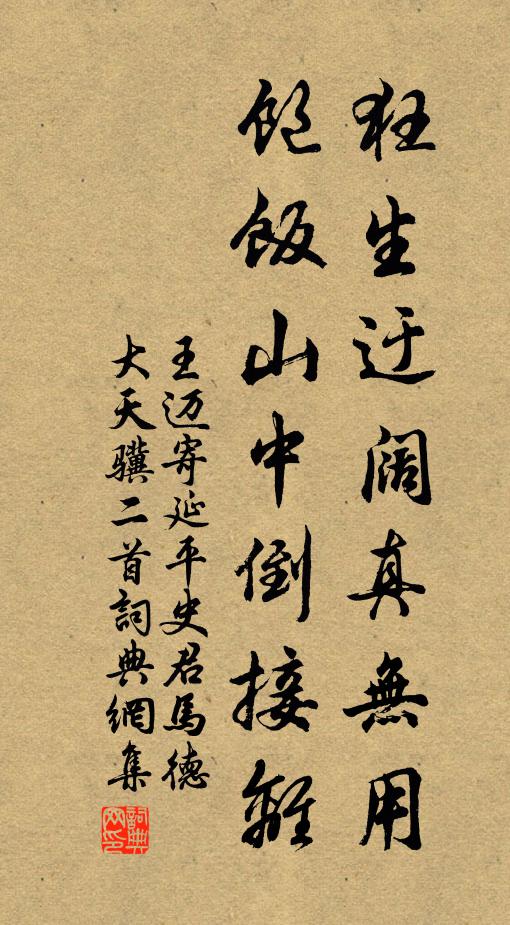 狂生迂阔真無用
飽飯山中倒接離
王迈寄延平史君馬德
大天骥二首詞典網集
詞典
网印